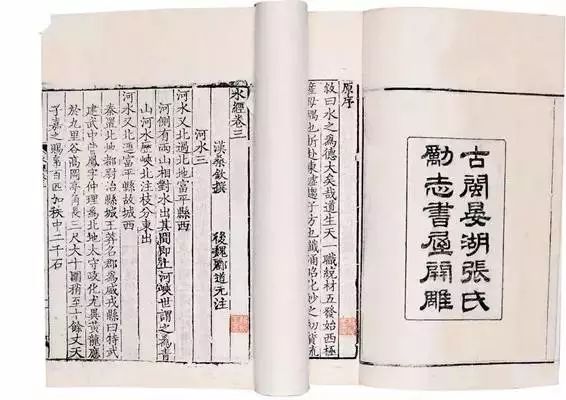 古閩晏湖張氏
勵志書屋開雕
原序
敘曰水之爲德大矣哉道生天一職統材五發始西極
水經卷三
漢桑欽撰 後魏酈道元注
河水三
河水又北過北地富平縣西
河側有兩山相對水出其間即上河峽世謂之爲青
山河水歷峽北注枝分東出
河水又北逕富平縣故城西
秦置北地都尉治縣城王莽名郡爲威戎縣曰特武
建武中曹鳳字仲理爲北地太守政化尤異黃龍應
於九里谷高岡亭角長三尺大十圍梢至十餘丈天
子嘉之賜帛百匹加秩中二千石